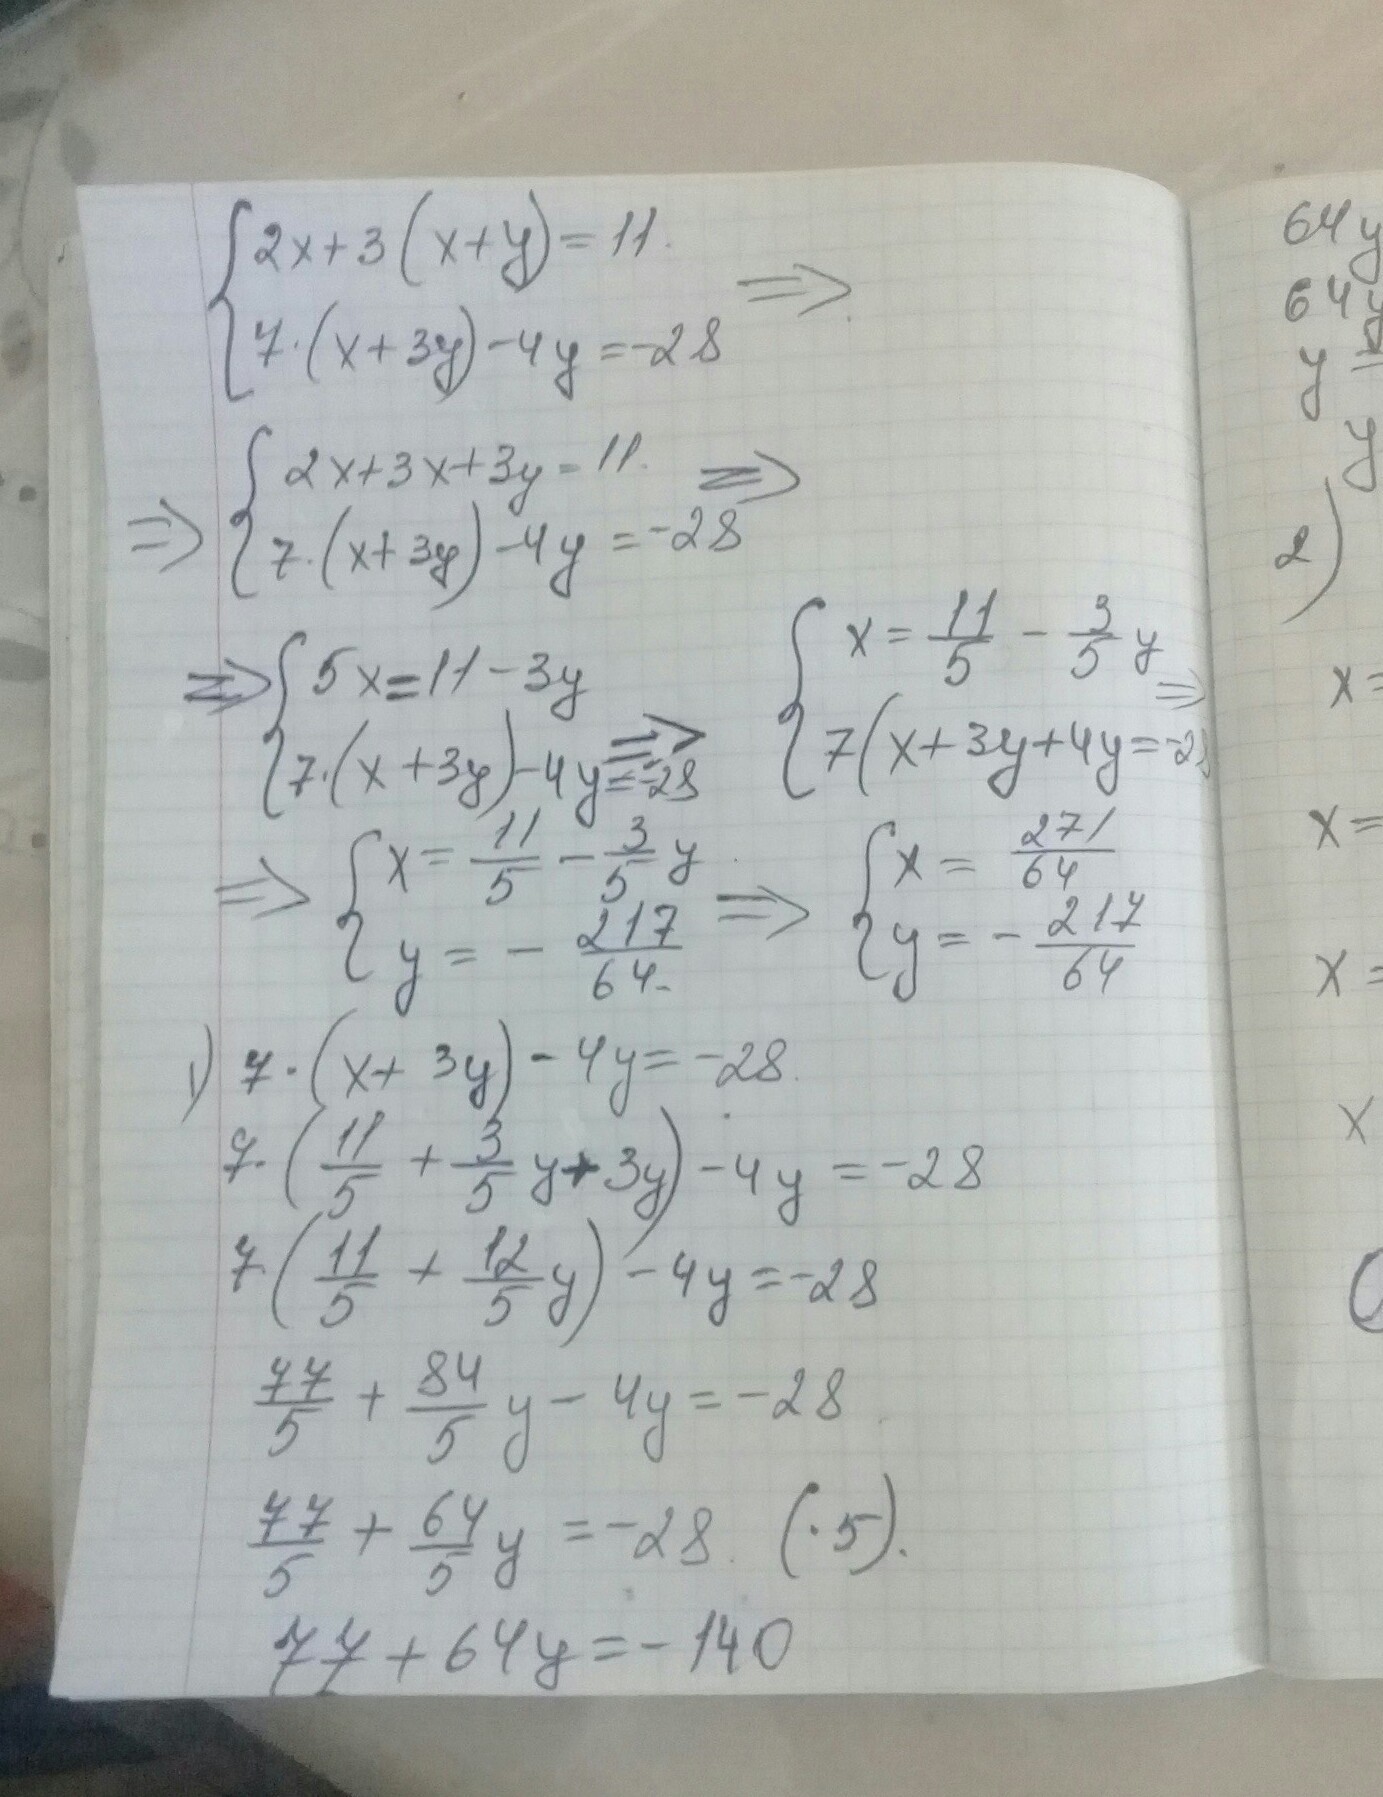 2x+3(x+y)=11.
7·(x+3y)-4y=-28 ⇒
⇒ 2x+3x+3y=11. ⇒
7·(x+3y)-4y=-28
⇒ 5x=11-3y
7·(x+3y)-4y=-28 ⇒
x=11/5 - 3/5 y
7(x+3y+4y=-28 ⇒
⇒ x=11/5 - 3/5 y
y=-217/64 ⇒
x=271/64
y=-217/64
1) 7·(x+3y)-4y=-28.
7·(11/5 + 3/5 y+3y)-4y=-28
7·(11/5 + 12/5 y)-4y=-28
77/5 + 84/5 y-4y=-28.
77/5 + 64/5 y=-28. (·5).
77+64y=-140
64y
64y
y=
y
2)
x=
x=
x=
x